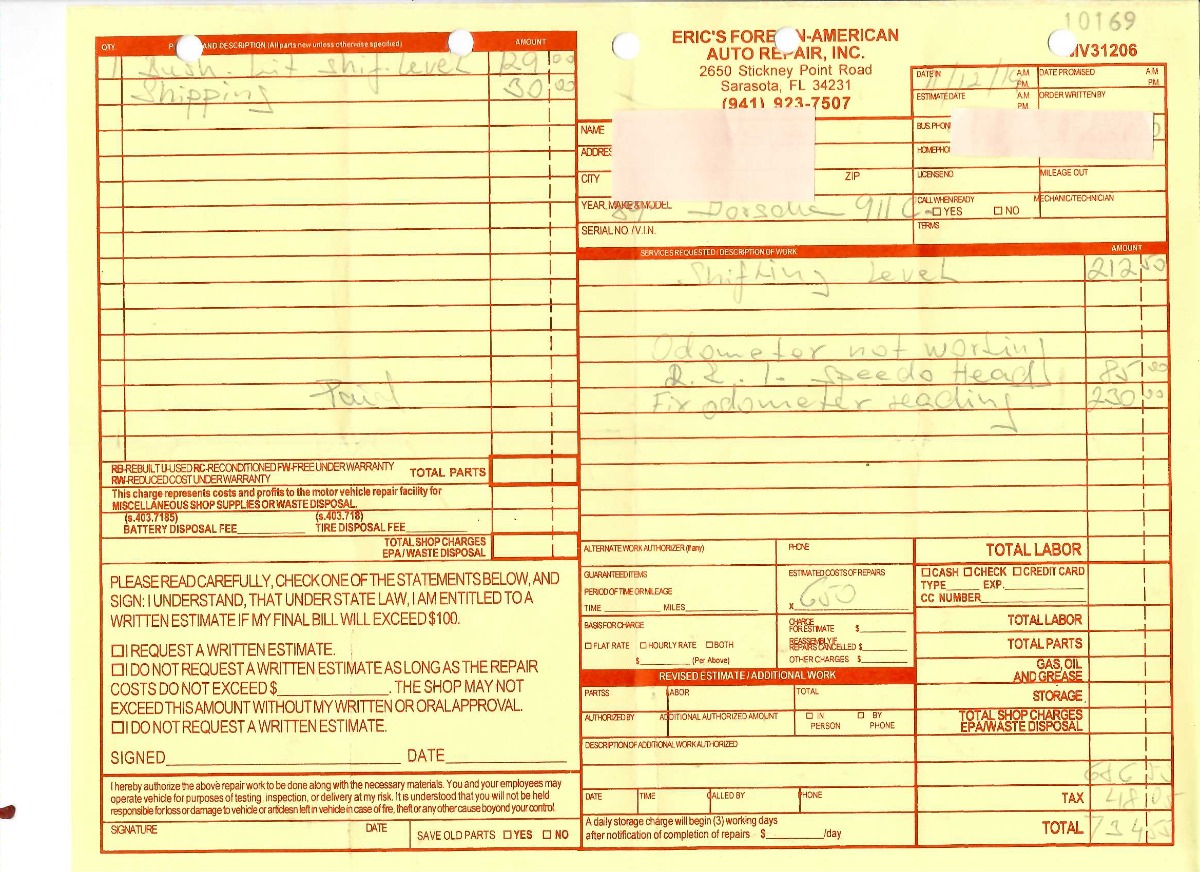 10169
ERIC'S FOREIGN-AMERICAN
AUTO REPAIR, INC.
2650 Stickney Point Road
Sarasota, FL 34231
(941) 923-7507
MV31206
QTY. AND DESCRIPTION (All parts new unless otherwise specified) AMOUNT
1 Bush. kit shif. level 129 00
Shipping 30.00
Paid
RB-REBUILT U-USED RC-RECONDITIONED FW-FREE UNDER WARRANTY
RW-REDUCED COST UNDER WARRANTY
TOTAL PARTS
This charge represents costs and profits to the motor vehicle repair facility for
MISCELLANEOUS SHOP SUPPLIES OR WASTE DISPOSAL.
(s.403.7185) (s.403.718)
BATTERY DISPOSAL FEE TIRE DISPOSAL FEE
TOTAL SHOP CHARGES
EPA / WASTE DISPOSAL
PLEASE READ CAREFULLY, CHECK ONE OF THE STATEMENTS BELOW, AND
SIGN: I UNDERSTAND, THAT UNDER STATE LAW, I AM ENTITLED TO A
WRITTEN ESTIMATE IF MY FINAL BILL WILL EXCEED $100.
☐ I REQUEST A WRITTEN ESTIMATE.
☐ I DO NOT REQUEST A WRITTEN ESTIMATE AS LONG AS THE REPAIR
COSTS DO NOT EXCEED $ . THE SHOP MAY NOT
EXCEED THIS AMOUNT WITHOUT MY WRITTEN OR ORAL APPROVAL.
☐ I DO NOT REQUEST A WRITTEN ESTIMATE.
SIGNED DATE
I hereby authorize the above repair work to be done along with the necessary materials. You and your employees may
operate vehicle for purposes of testing, inspection, or delivery at my risk. It is understood that you will not be held
responsible for loss or damage to vehicle or articlesn left in vehicle in case of fire, theft or any other cause beyond your control
SIGNATURE DATE
SAVE OLD PARTS ☐ YES ☐ NO
DATE IN A.M. P.M. DATE PROMISED A.M. P.M.
ESTIMATE DATE A.M. P.M. ORDER WRITTEN BY
NAME BUS. PHON
ADDRES HOME PHO
CITY ZIP LICENSE NO MILEAGE OUT
YEAR, MAKE & MODEL 89 Porsche 911 C
CALL WHEN READY ☐ YES ☐ NO MECHANIC/TECHNICIAN
SERIAL NO / V.I.N. TERMS
SERVICES REQUESTED / DESCRIPTION OF WORK AMOUNT
Shifting level 212 50
Odometer not working
R. R. 1. Speedo Head 85 00
Fix odometer reading 230 00
ALTERNATE WORK AUTHORIZER (if any) PHONE
TOTAL LABOR
GUARANTEED ITEMS
PERIOD OF TIME OR MILEAGE
TIME MILES
ESTIMATED COSTS OF REPAIRS
X 650
☐ CASH ☐ CHECK ☐ CREDIT CARD
TYPE EXP.
CC NUMBER
BASIS FOR CHARGE
☐ FLAT RATE ☐ HOURLY RATE ☐ BOTH
$ (Per Above)
CHARGE FOR ESTIMATE $
REASSEMBLY IF REPAIRS CANCELLED $
OTHER CHARGES $
TOTAL LABOR
TOTAL PARTS
GAS, OIL
AND GREASE
STORAGE
TOTAL SHOP CHARGES
EPA/WASTE DISPOSAL
REVISED ESTIMATE / ADDITIONAL WORK
PARTSS LABOR TOTAL
AUTHORIZED BY ADDITIONAL AUTHORIZED AMOUNT ☐ IN PERSON ☐ BY PHONE
DESCRIPTION OF ADDITIONAL WORK AUTHORIZED
686 50
DATE TIME CALLED BY PHONE
TAX 48 05
A daily storage charge will begin (3) working days
after notification of completion of repairs $ /day
TOTAL 734 55